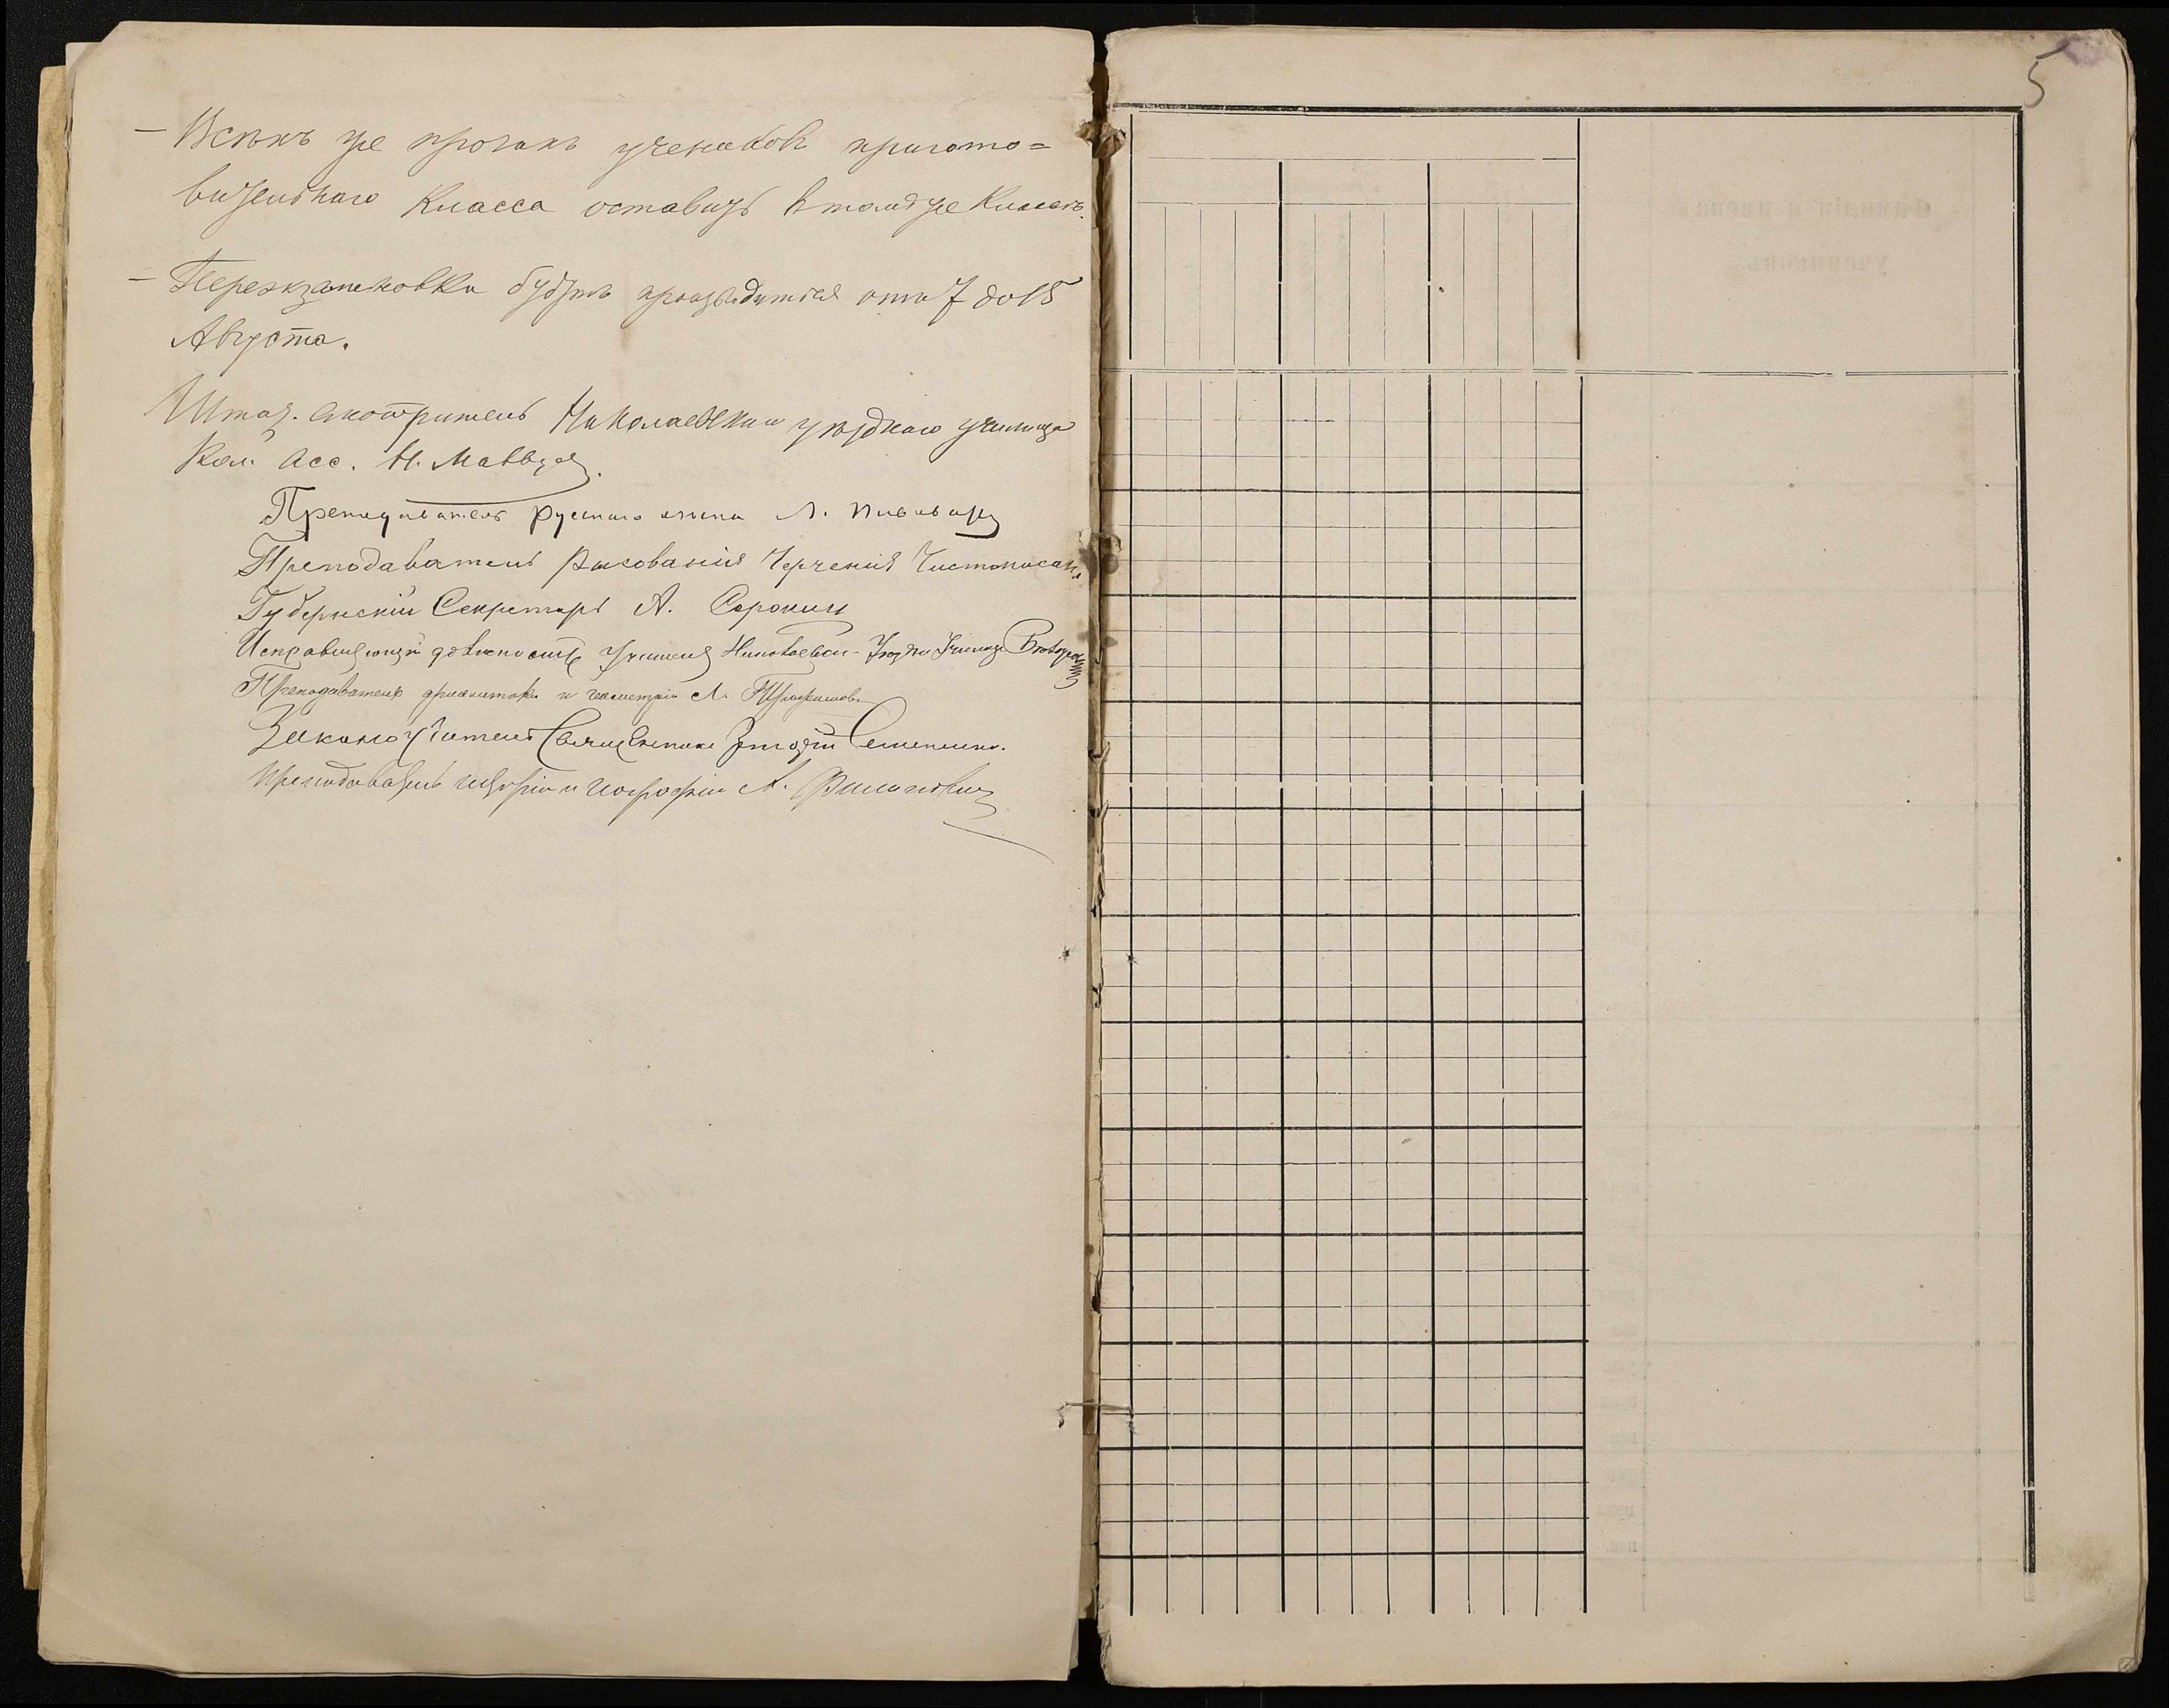 — Всѣхъ же прочихъ учениковъ пригото=
вительнаго класса оставить въ томъ же классѣ.
— Переэкзаменовка будетъ производиться отъ 7 до 15
Августа.
Штат. смотритель Николаевскаго уѣзднаго училища
Кол. Асс. Н.
Преподаватель русскаго языка Л.
Преподаватель Рисованія Черченія Чистописанія
Губернскій Секретарь А. Сорокинъ
Исправляющій должность Учителя Николаевск. Уѣздн. Училища
Преподаватель ариѳметики и геометріи
Законоучитель Священникъ
Преподаватель исторіи и географіи А. Филиповичъ
5
Фамиліи и имена
учениковъ.